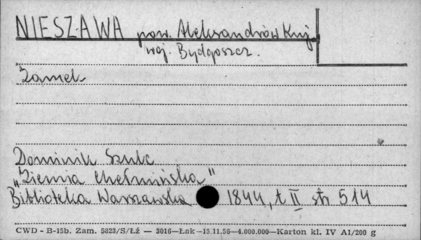 NIESZAWA pow. Aleksandrów Kuj.
woj. Bydgoszcz.
Zamek
Dominik Szulc
"Ziemia Chełmińska"
Biblioteka Warszawska 1844, t II str 514
CWD - B-15b. Zam. 5823/S/Łź — 3016—Łok—15.11.56—4.000.000—Karton kl. IV A1/200 g